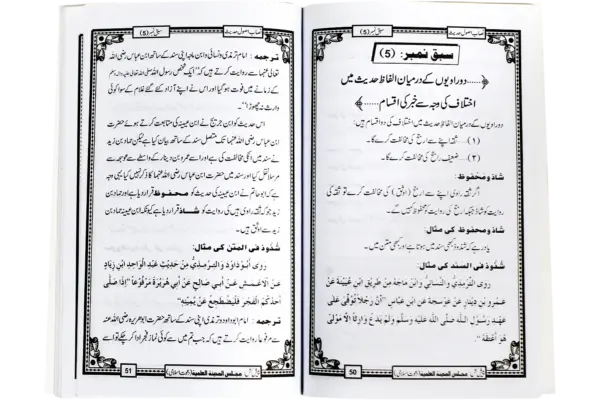 نصاب اصول حدیث
سبق نمبر (5)
سبق نمبر: (5)
﴿......دو راویوں کے درمیان الفاظ حدیث میں
اختلاف کی وجہ سے خبر کی اقسام......﴾
دو راویوں کے درمیان الفاظ حدیث میں اختلاف کی دو اقسام ہیں:
(۱)...... ثقہ اپنے سے ارجح کی مخالفت کرے گا۔
(۲)...... ضعیف راجح کی مخالفت کرے گا۔
شاذ ومحفوظ:
اگر ثقہ راوی اپنے سے ارجح (اوثق) کی مخالفت کرے تو ثقہ کی
روایت کو شاذ جبکہ ارجح کی روایت کو محفوظ کہیں گے۔
شاذ ومحفوظ کی مثال:
یاد رہے کہ شذوذ کبھی سند میں ہوتا ہے اور کبھی متن میں۔
شذوذ فی السند کی مثال:
روى الترمذي والنسائي وابن ماجة من طريق ابن عيينة عن
عمرو بن دينار عن عوسجة عن ابن عباس "أن رجلا توفي على
عهد رسول الله صلى الله عليه وسلم ولم يدع وارثا إلا مولى
هو أعتقه"
50
مجلس المدینة العلمیة (دعوت اسلامی)
نصاب اصول حدیث
سبق نمبر (5)
ترجمہ : امام ترمذی ونسائی وابن ماجہ اپنی سند کے ساتھ ابن عباس رضی اللہ
تعالیٰ عنہما سے روایت کرتے ہیں کہ "ایک شخص رسول اللہ صلی اللہ تعالیٰ علیہ وسلم
کے زمانے میں فوت ہو گیا اور اس نے اپنے آزاد کئے گئے غلام کے سوا کوئی
وارث نہ چھوڑا"۔
اس حدیث کو ابن جریج نے ابن عیینہ کی متابعت کرتے ہوئے حضرت
ابن عباس رضی اللہ عنہما تک متصل سند کے ساتھ بیان کیا ہے لیکن حماد بن زید
نے سند میں انکی مخالفت کی ہے اور اسے عمرو بن دینار کے واسطے سے عوسجہ سے
مرسلا نقل کیا اور سند میں حضرت ابن عباس کا ذکر نہیں کیا، یہی وجہ
ہے کہ ابو حاتم نے ابن عیینہ کی حدیث کو محفوظ قرار دیا ہے اور حماد بن
زید جو کہ ثقہ راوی ہیں کی روایت کو شاذ قرار دیا ہے کیونکہ ابن عیینہ حماد بن
زید سے اوثق ہیں۔
شذوذ فی المتن کی مثال:
روى أبو داود والترمذي من حديث عبد الواحد ابن زياد
عن الأعمش عن أبي صالح عن أبي هريرة مرفوعا "إذا صلى
أحدكم الفجر فليضطجع عن يمينه"
ترجمہ : امام ابو داود وترمذی اپنی سند کے ساتھ حضرت ابو ہریرہ رضی اللہ عنہ
سے مرفوعا روایت کرتے ہیں کہ جب تم میں سے کوئی نماز فجر ادا کر چکے تو اسے
51
مجلس المدینة العلمیة (دعوت اسلامی)